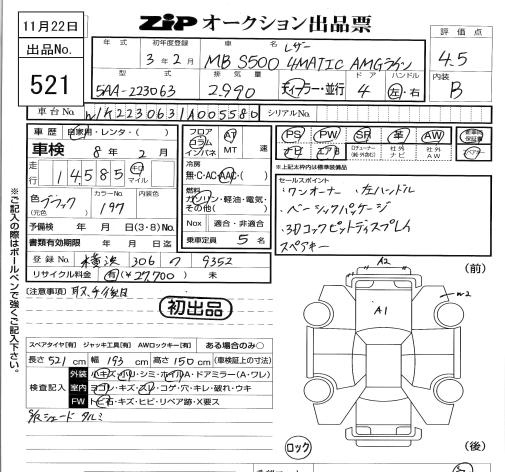 11月22日
ZIP オークション出品票
出品No.
521
評価点
4.5
内装
B
年式 初年度登録 車名
3年2月 レザー
MB S500 4MATIC AMGライン
型式 排気量 ドア ハンドル
5AA-223063 2.990 ディーラー・並行 4 左・右
車台No. W1K2230631A005580 シリアルNo.
車歴 自家用・レンタ・( )
車検 8年2月
走行 14585 キロ マイル
色 ブラック (元色) カラーNo. 197 内装色
予備検 年 月 日(3・8)No.
書類有効期限 年 月 日迄
登録No. 横浜 306 9352
リサイクル料金 有(¥27,700) 未
フロア コラム インパネ
AT MT 速
冷房
無・C・AC・AAC・( )
燃料
ガソリン・軽油・電気・その他( )
Nox 適合・非適合
乗車定員 5 名
PS PW SR 革 AW 新車時保証書
ナビ エアB 社外ナビ 社外AW
*上記太枠内は標準装備品
セールスポイント
・ワンオーナー ・左ハンドル
・ベーシックパッケージ
・3Dコックピットディスプレイ
スペアキー
[注意事項] 取、チ後日
初出品
(前)
A2
W2
A1
スペアタイヤ[有] ジャッキ工具[有] AWロックキー[有] ある場合のみ○
長さ 521 cm 幅 193 cm 高さ 150 cm (車検証上の寸法)
検査記入
外装 小キズ・小U・シミ・ホイルA・ドアミラー(A・ワレ)
室内 ヨゴレ・キズ・スレ・コゲ・穴・キレ・破れ・ウキ
FW トビ石・キズ・ヒビ・リペア跡・X要ス
S/Rシェード タルミ
ロック
(後)
※ご記入の際はボールペンで強くご記入下さい。